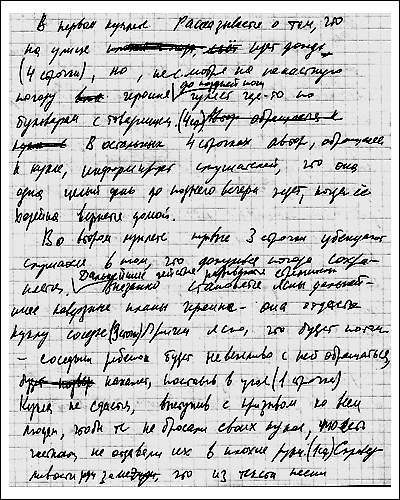 В первом куплете рассказывается о том, что
на улице идет дождь
(4 строчки), но, несмотря на ненастную
погоду героиня до поздней ночи гуляет где-то по
бульварам с товарищем. (4 стр)
В остальных 4 строчках автор, обращаясь
к кукле, информирует слушателей, что она
одна целый день до позднего вечера ждет, когда ее
хозяйка вернется домой.
Во втором куплете первые 3 строчки убеждают
слушателя в том, что дождливая погода сохра-
няется. Дальнейшие действия развиваются стремительно
Внезапно становятся ясны дальней-
шие коварные планы героини - она отдаст
куклу соседке (3 строки) Причем ясно, что будет потом
- соседкин ребенок будет невежливо с ней обращаться,
накажет, поставив в угол (1 строчка)
Кукла не сдается, выступив с призывом ко всем
людям, чтобы те не бросали своих кукол,
не отдавали их в плохие руки. (1стр) Справед-
ливости ради замечу, что из текста песни